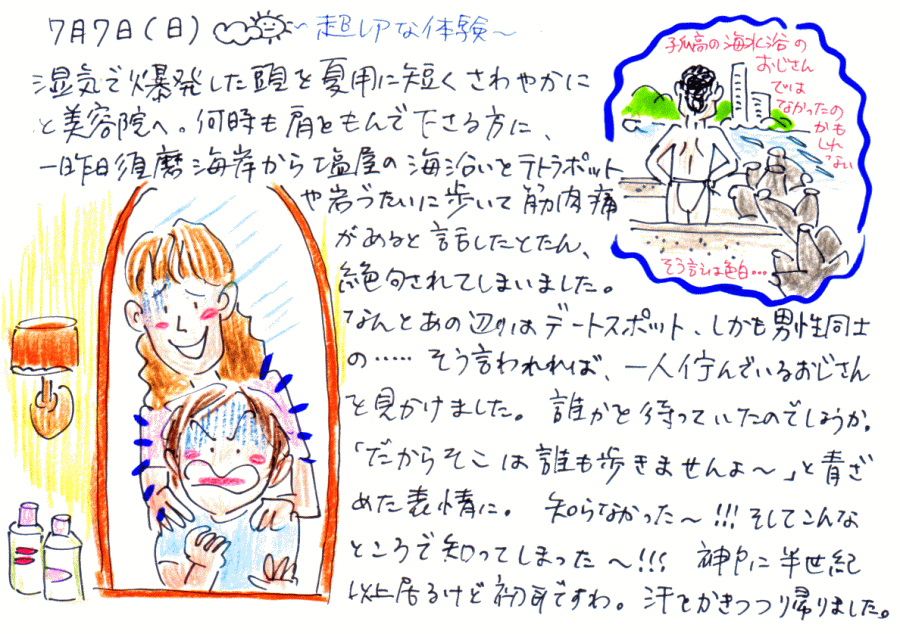 7月7日(日) ~超レアな体験~
湿気で爆発した頭を夏用に短くさわやかに
と美容院へ。何時も肩をもんで下さる方に、
一昨日須磨海岸から塩屋の海沿いをテトラポット
や岩づたいに歩いて筋肉痛
があると話したとたん、
絶句されてしまいました。
なんとあの辺りはデートスポット、しかも男性同士
の…… そう言われれば、一人佇んでいるおじさん
を見かけました。誰かを待っていたのでしょうか。
「だからそこは誰も歩きませんよ〜」と青ざ
めた表情に。 知らなかった〜!!! そしてこんな
ところで知ってしまった〜!!! 神戸に半世紀
以上居るけど初耳ですわ。汗をかきつつ帰りました。
孤高の海水浴の
おじさん
では
なかったの
かも
しれ
ない
そう言えば色白…